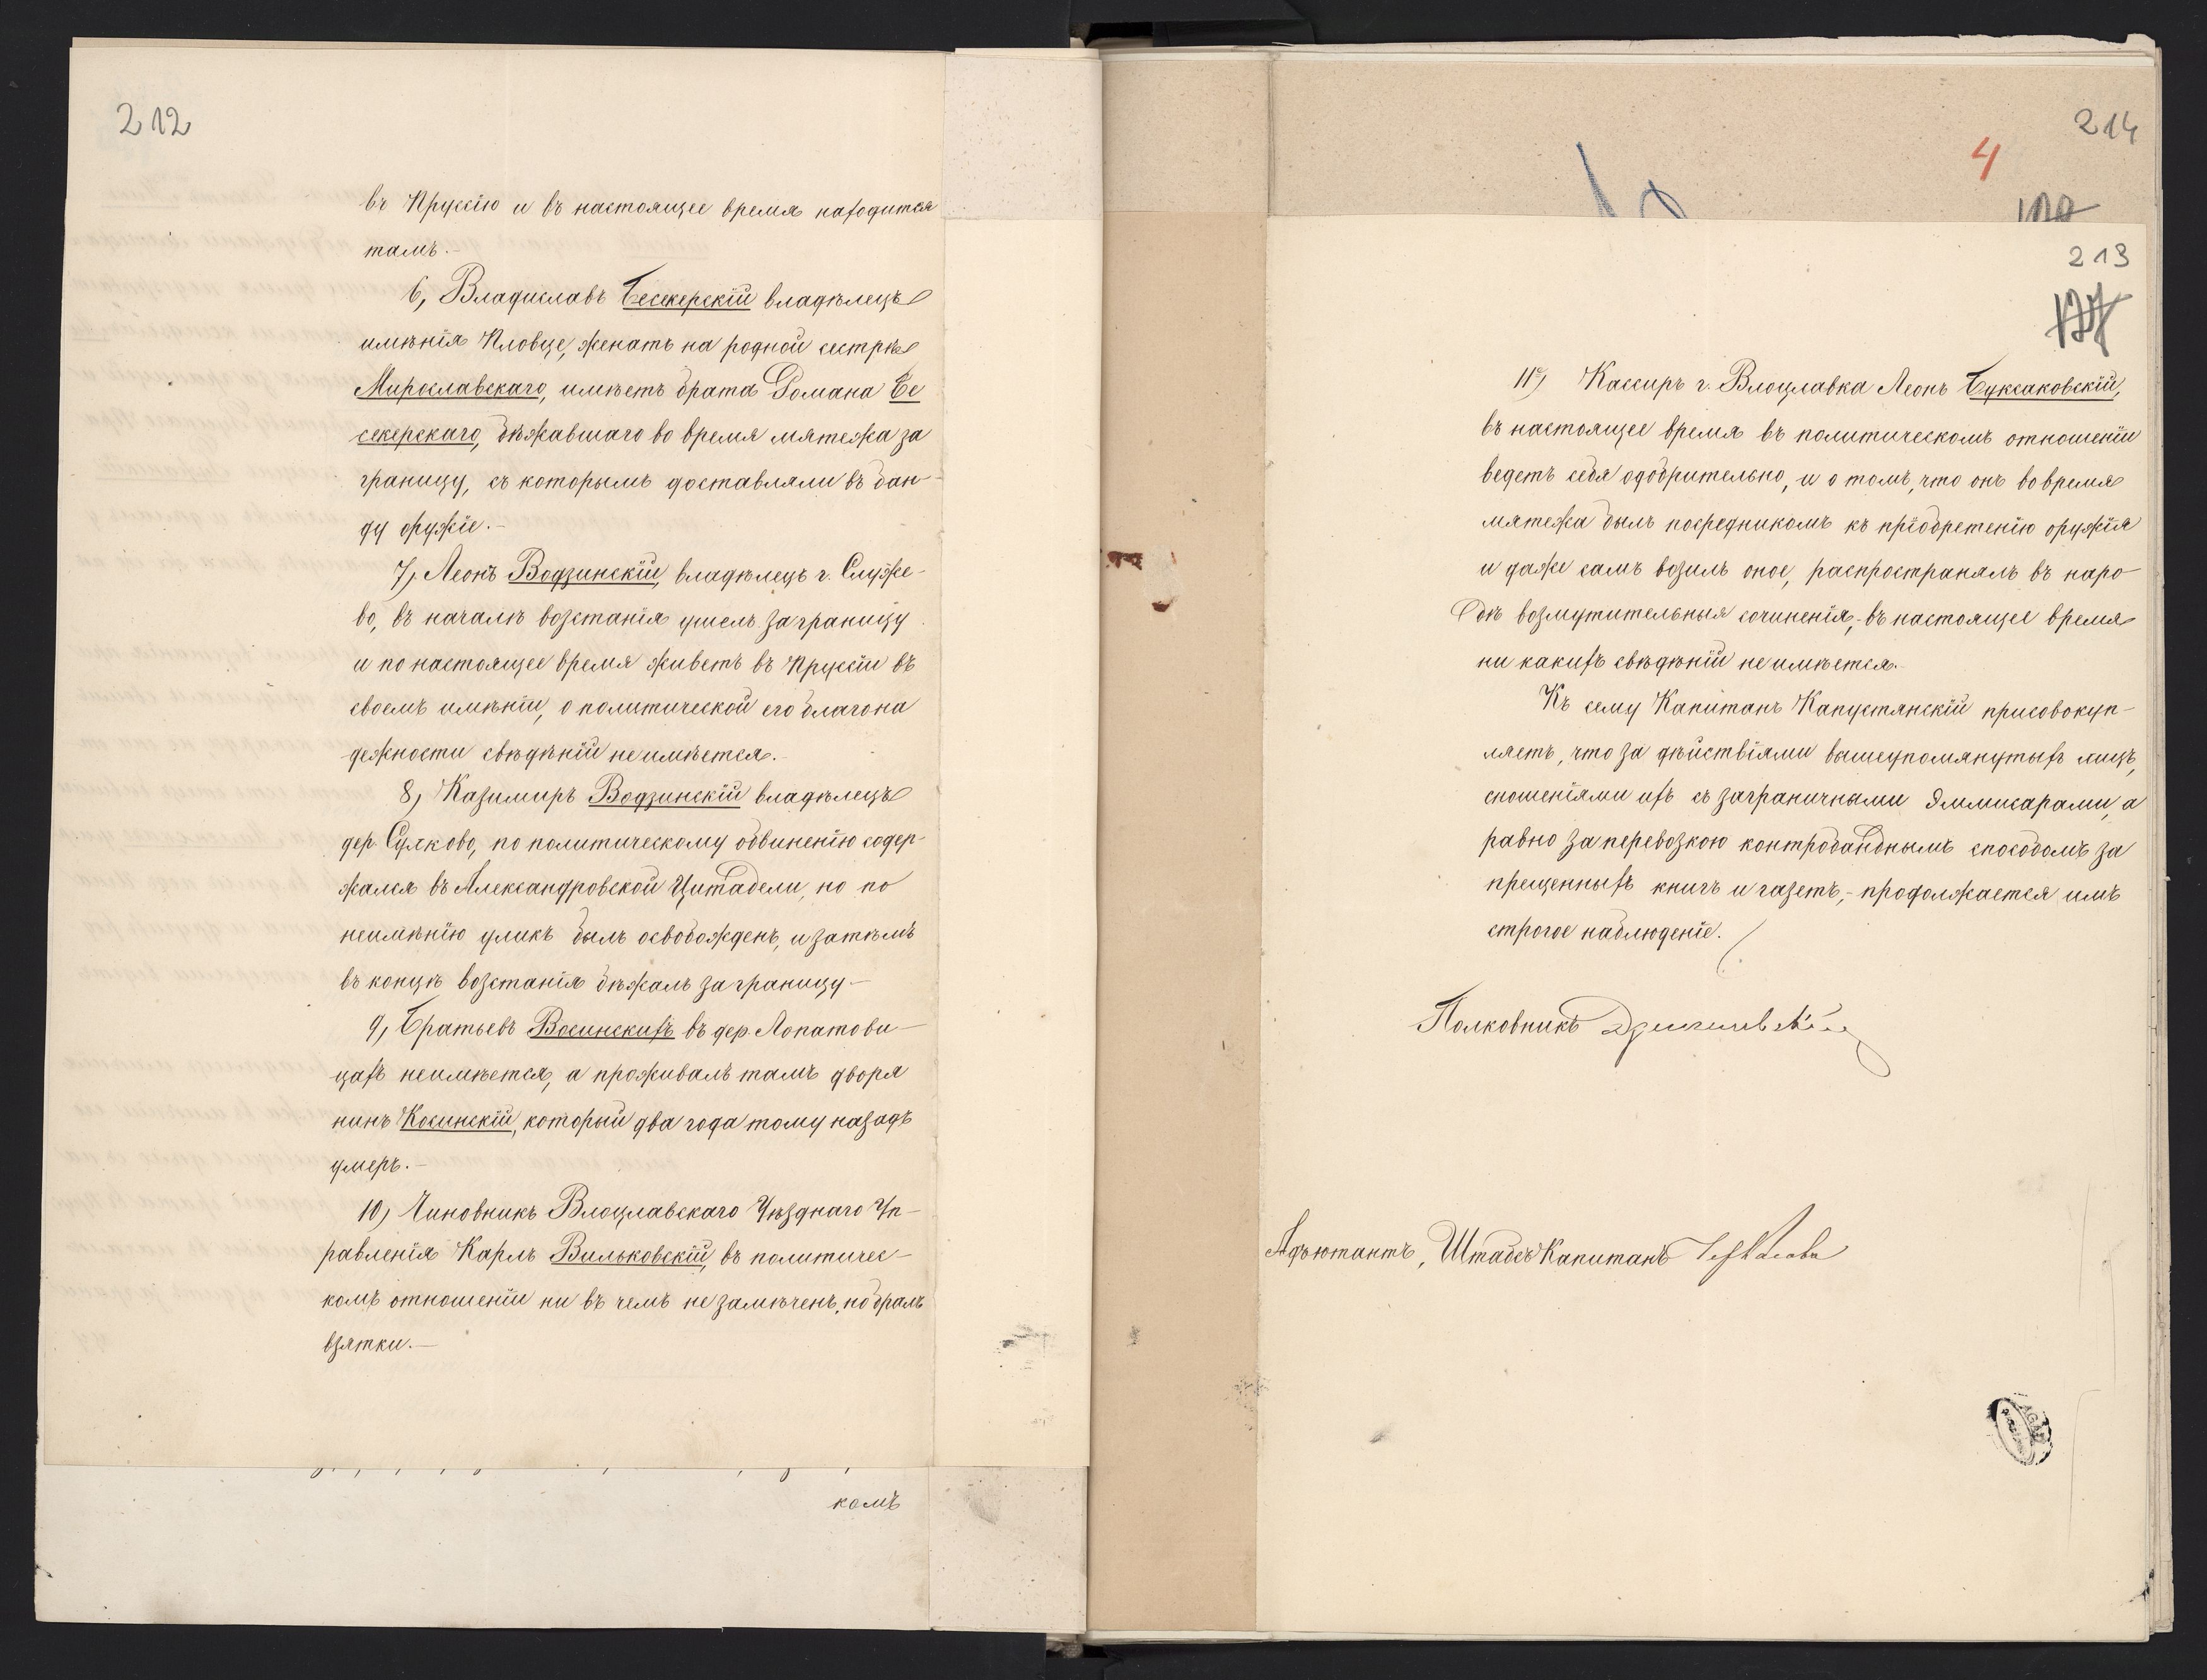 212
въ Пруссію и въ настоящее время находится
тамъ.-
6, Владиславъ Бесекерскій владѣлецъ
имѣнія Пловце, женатъ на родной сестрѣ
Мирославскаго, имѣетъ брата Романа Бе
секерскаго, бѣжавшаго во время мятежа за
границу, съ которымъ доставляли въ бан-
ду оружіе.-
7, Леонъ Водзинскій, владѣлецъ г. Служе-
во, въ началѣ возстанія ушелъ заграницу
и по настоящее время живетъ въ Пруссіи въ
своемъ имѣніи, о политической его благона
дежности свѣдѣній неимѣется.-
8, Казимиръ Водзинскій владѣлецъ
дер. Сулково, по политическому обвиненію содер-
жался въ Александровской Цитадели, но по
неимѣнію уликъ былъ освобожденъ, и затѣмъ
въ концѣ возстанія бѣжалъ заграницу-
9, Братьевъ Восинскихъ въ дер. Лопатови-
цахъ неимѣется, а проживалъ тамъ дворя
нинъ Косинскій, который два года тому назадъ
умеръ.-
10, Чиновникъ Влоцлавскаго Уѣзднаго Уп-
равленія Карлъ Вильковскій, въ политичес-
комъ отношеніи ни въ чемъ не замѣченъ, но бралъ
взятки.-
комъ
214
4
213
11, Кассиръ г. Влоцлавка Леонъ Буксаковскій,
въ настоящее время въ политическомъ отношеніи
ведетъ себя одобрительно, и о томъ, что онъ вовремя
мятежа былъ посредникомъ къ пріобретенію оружія
и даже самъ возилъ оное, распространялъ въ наро-
дѣ возмутительныя сочиненія,- въ настоящее время
ни какихъ свѣдѣній не имѣется.-
Къ сему Капитанъ Капустянскій присовокуп-
ляетъ, что за дѣйствіями вышеупомянутыхъ лицъ,
сношеніями ихъ съ заграничными Эммисарами, а
равно за перевозкою контробанднымъ способомъ за
прещенныхъ книгъ и газетъ,- продолжается имъ
строгое наблюденіе.
Полковникъ
Адъютантъ, Штабсъ Капитанъ